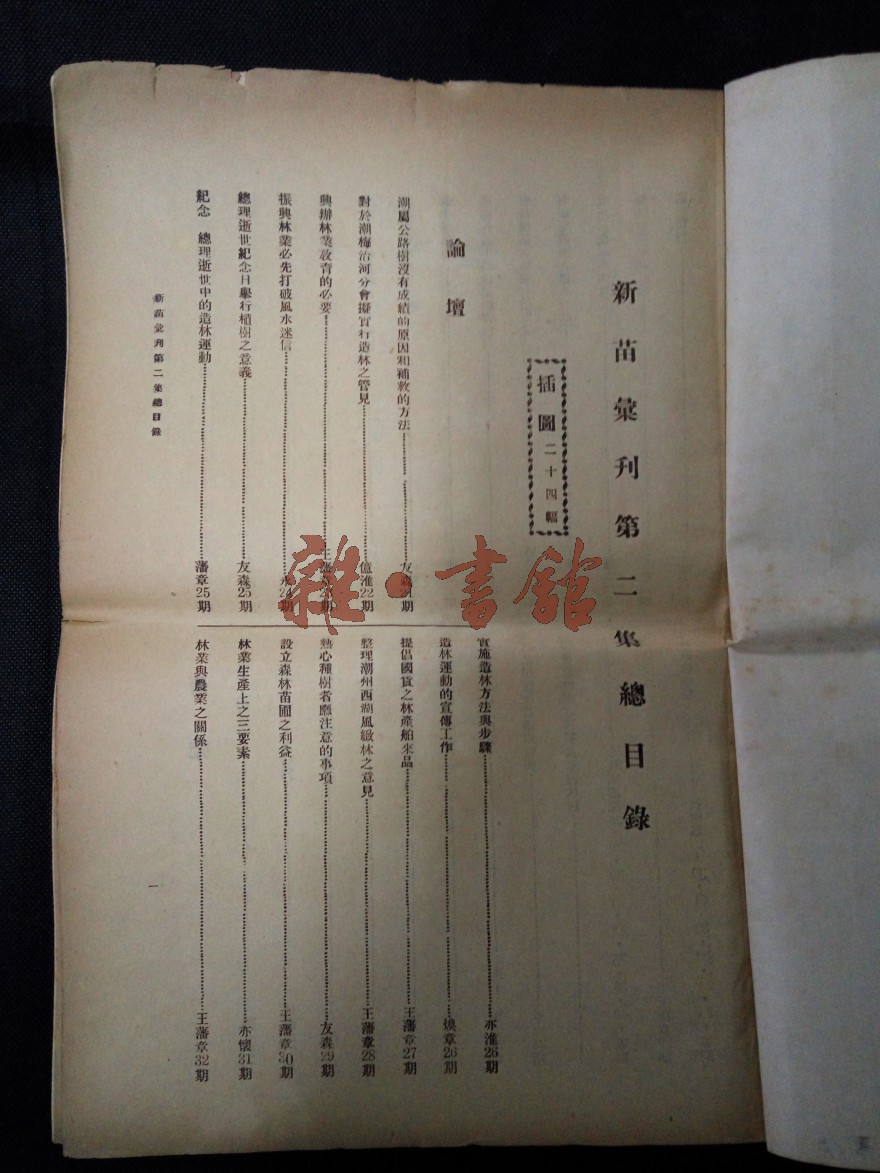 新苗彙刊第二集總目錄
插圖二十四幅
論壇
潮屬公路樹沒有成績的原因和補救的方法……友森21期
對於潮梅治河分會擬實行造林之管見……億淮22期
興辦林業教育的必要……王藩章23期
振興林業必先打破風水迷信……永24期
總理逝世紀念日舉行植樹之意義……友森25期
紀念 總理逝世中的造林運動……藩章25期
實施造林方法與步驟……亦淮26期
造林運動的宣傳工作……煥章26期
提倡國貨之林產舶來品……王藩章27期
整理潮州西湖風緻林之意見……王藩章28期
熱心種樹者應注意的事項……友森29期
設立森林苗圃之利益……王藩章30期
林業生產上之三要素……亦懷31期
林業與農業之關係……王藩章32期
新苗彙刊第二集總目錄
一
雜·書館